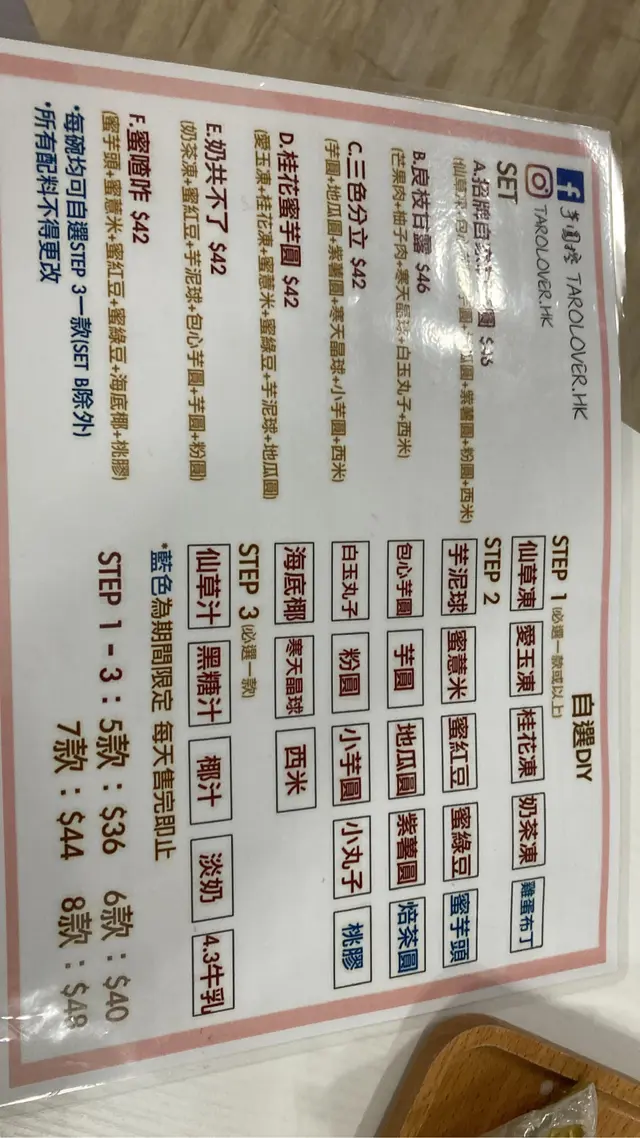 TAROLOVER.HK
TAROLOVER.HK
SET
A.招牌自 圓
(仙草凍+包心 圓+紫薯圓+粉圓+西米)
B.良枝甘露 $46
(芒果肉+柚子肉+寒天晶球+白玉丸子+西米)
C.三色分立 $42
(芋圓+地瓜圓+紫薯圓+寒天晶球+小芋圓+西米)
D.桂花蜜芋圓 $42
(愛玉凍+桂花凍+蜜薏米+蜜綠豆+芋泥球+地瓜圓)
E.奶共不了 $42
(奶茶凍+蜜紅豆+芋泥球+包心芋圓+芋圓+粉圓)
F.蜜喳咋 $42
(蜜芋頭+蜜薏米+蜜紅豆+蜜綠豆+海底椰+桃膠)
*每碗均可自選STEP 3一款(SET B除外)
*所有配料不得更改
自選DIY
STEP 1 (必選一款或以上)
仙草凍 愛玉凍 桂花凍 奶茶凍 雞蛋布丁
STEP 2
芋泥球 蜜薏米 蜜紅豆 蜜綠豆 蜜芋頭
包心芋圓 芋圓 地瓜圓 紫薯圓 焙茶圓
白玉丸子 粉圓 小芋圓 小丸子 桃膠
海底椰 寒天晶球 西米
STEP 3 (必選一款)
仙草汁 黑糖汁 椰汁 淡奶 4.3牛乳
*藍色為期間限定 每天售完即止
STEP 1 - 3 : 5款 : $36 6款 : $40
7款 : $44 8款 : $48